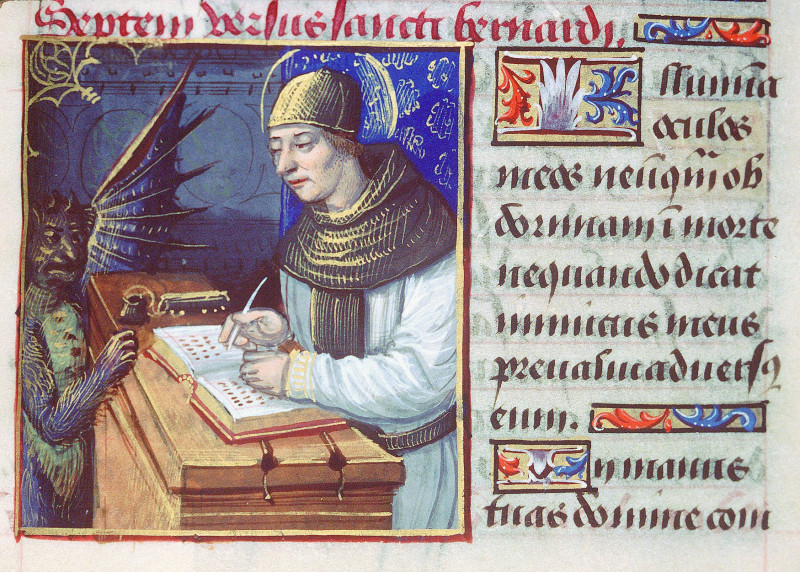 Septem versus sancti bernardi.
Illumina
oculos
meos neūqm̄ ob
dormiam ī morte
nequando dicat
inimicus meus
preualui aduersꝰ
eum.
In manus
tuas domine com